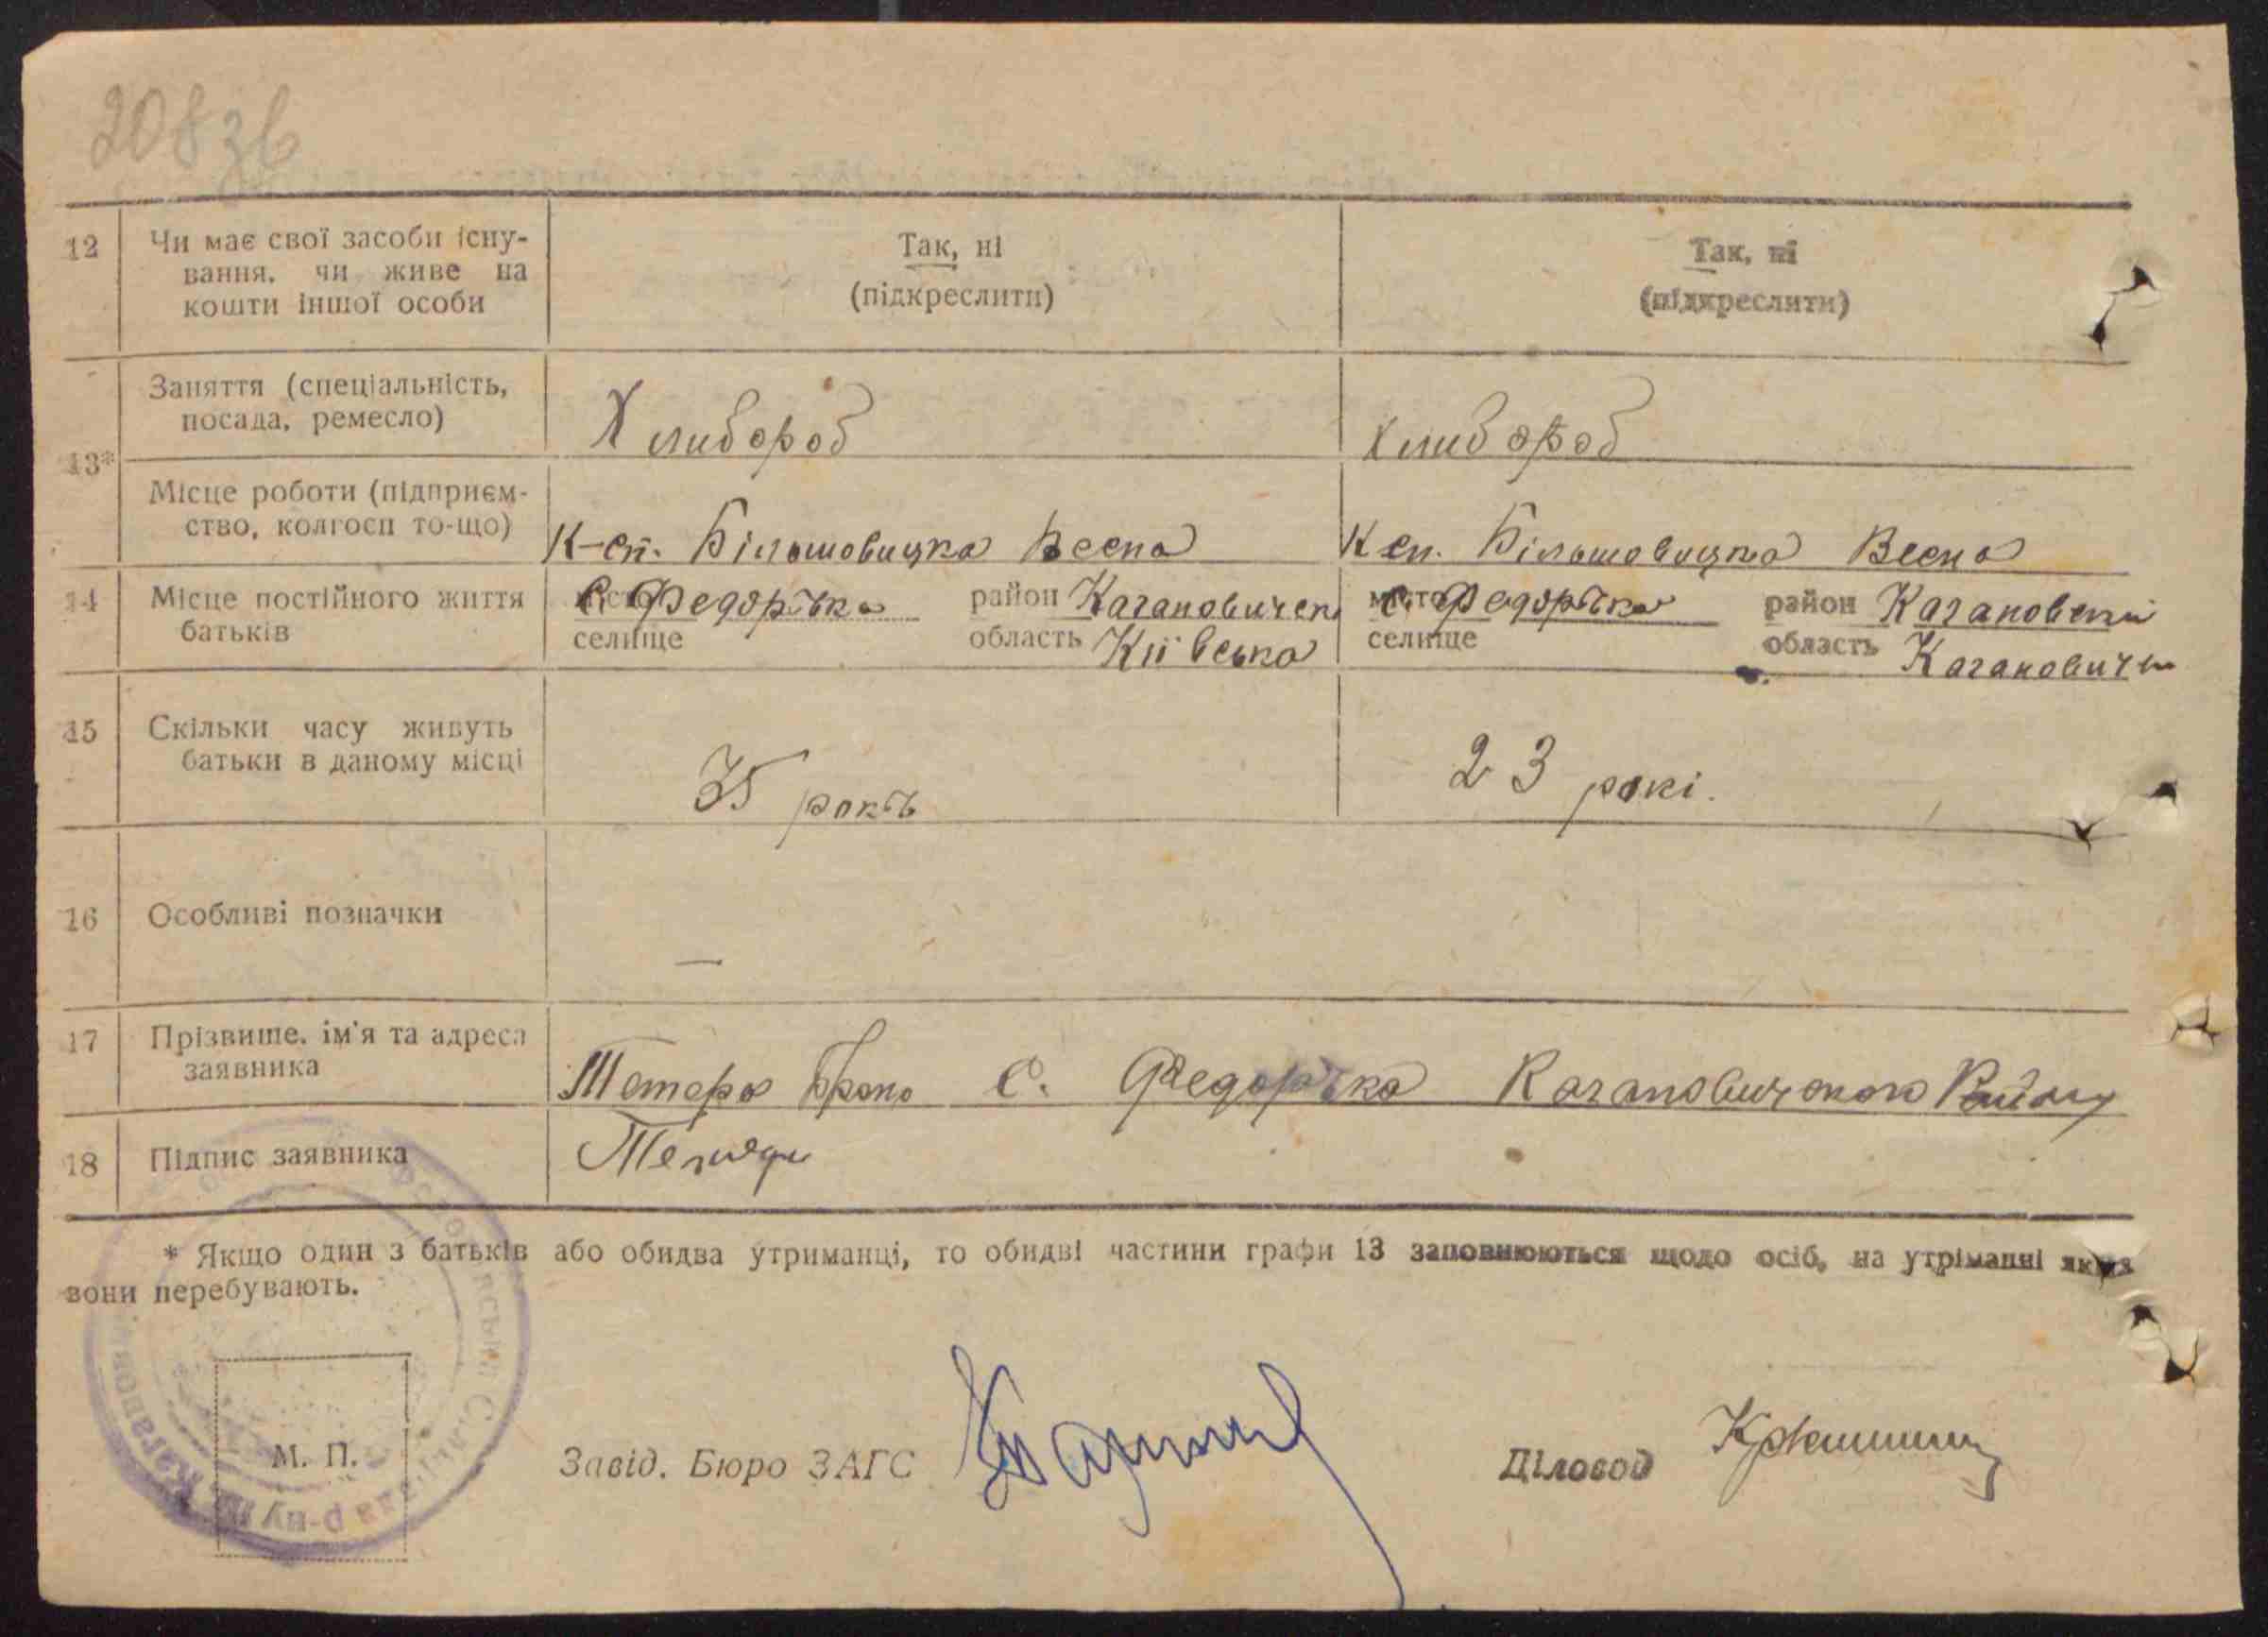 208 зв
12 Чи має свої засоби існу-
вання, чи живе на
кошти іншої особи
Так, ні
(підкреслити)
Так, ні
(підкреслити)
13* Заняття (спеціальність,
посада, ремесло)
Хлибороб
Хлибороб
Місце роботи (підприєм-
ство, колгосп то-що)
К-сп. Більшовицка Весна
К сп. Більшовицка Весна
14 Місце постійного життя
батьків
місто с. Федорівка район Кагановичск
селище область Київська
місто с. Федорівка район Кагановский
селище область Каганович
15 Скільки часу живуть
батьки в даному місці
35 років
23 рокі.
16 Особливі позначки
—
17 Прізвище, ім'я та адреса
заявника
Тетера с. Федорівка Кагановичского Району
18 Підпис заявника
* Якщо один з батьків або обидва утриманці, то обидві частини графи 13 заповнюються щодо осіб, на утріманні яких
вони перебувають.
М. П.
Завід. Бюро ЗАГС
Діловод